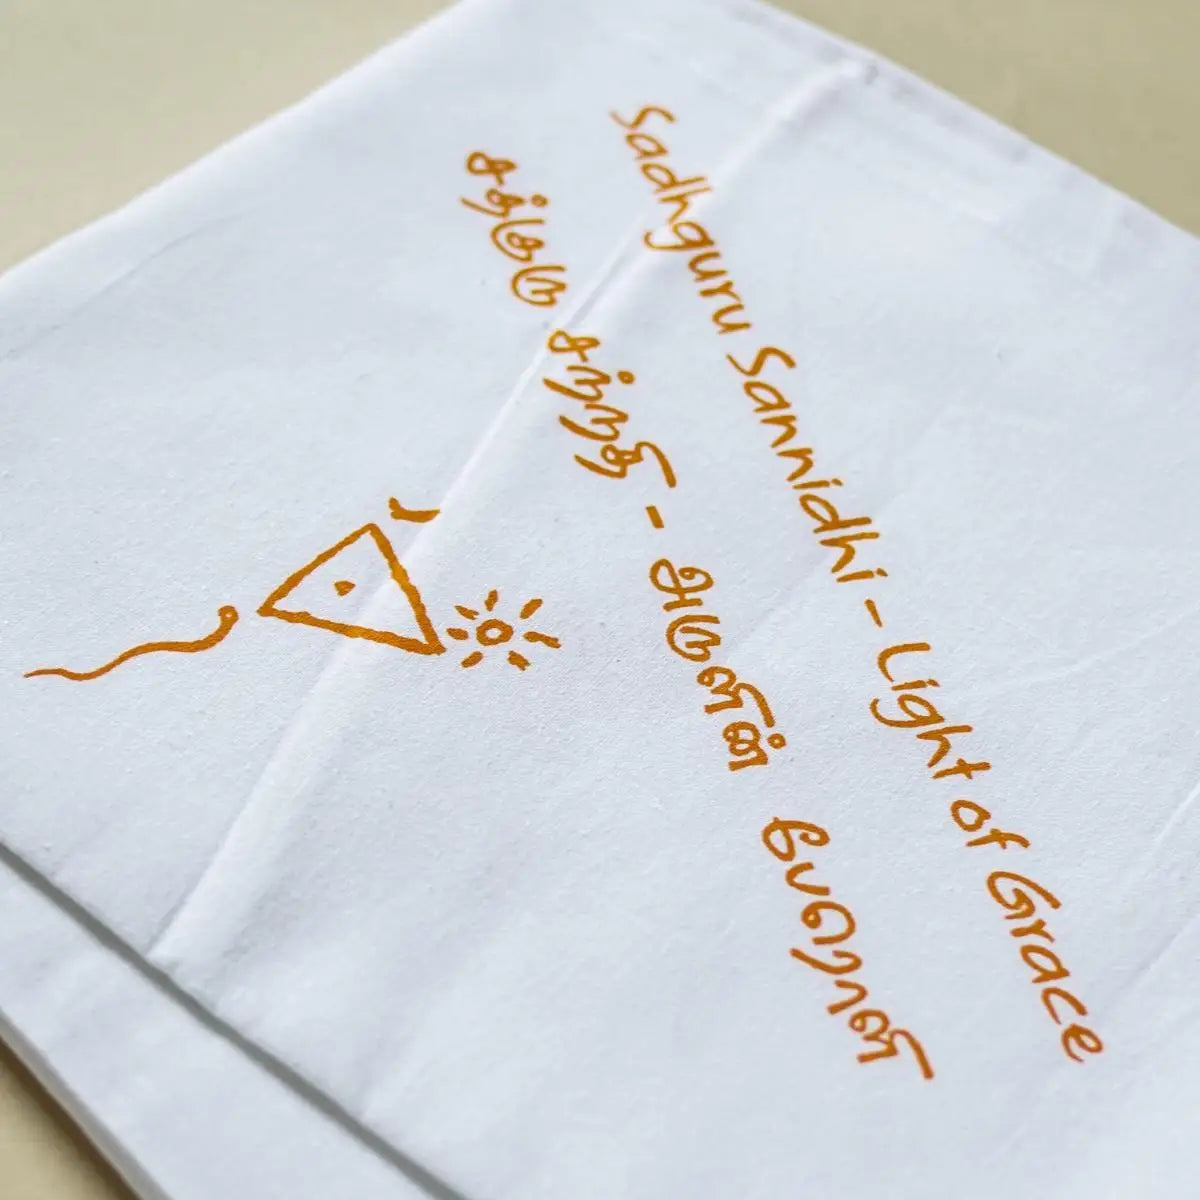 Sadhguru Sannidhi - Light of Grace
சத்குரு சந்நதி - அருளின் பேரொளி